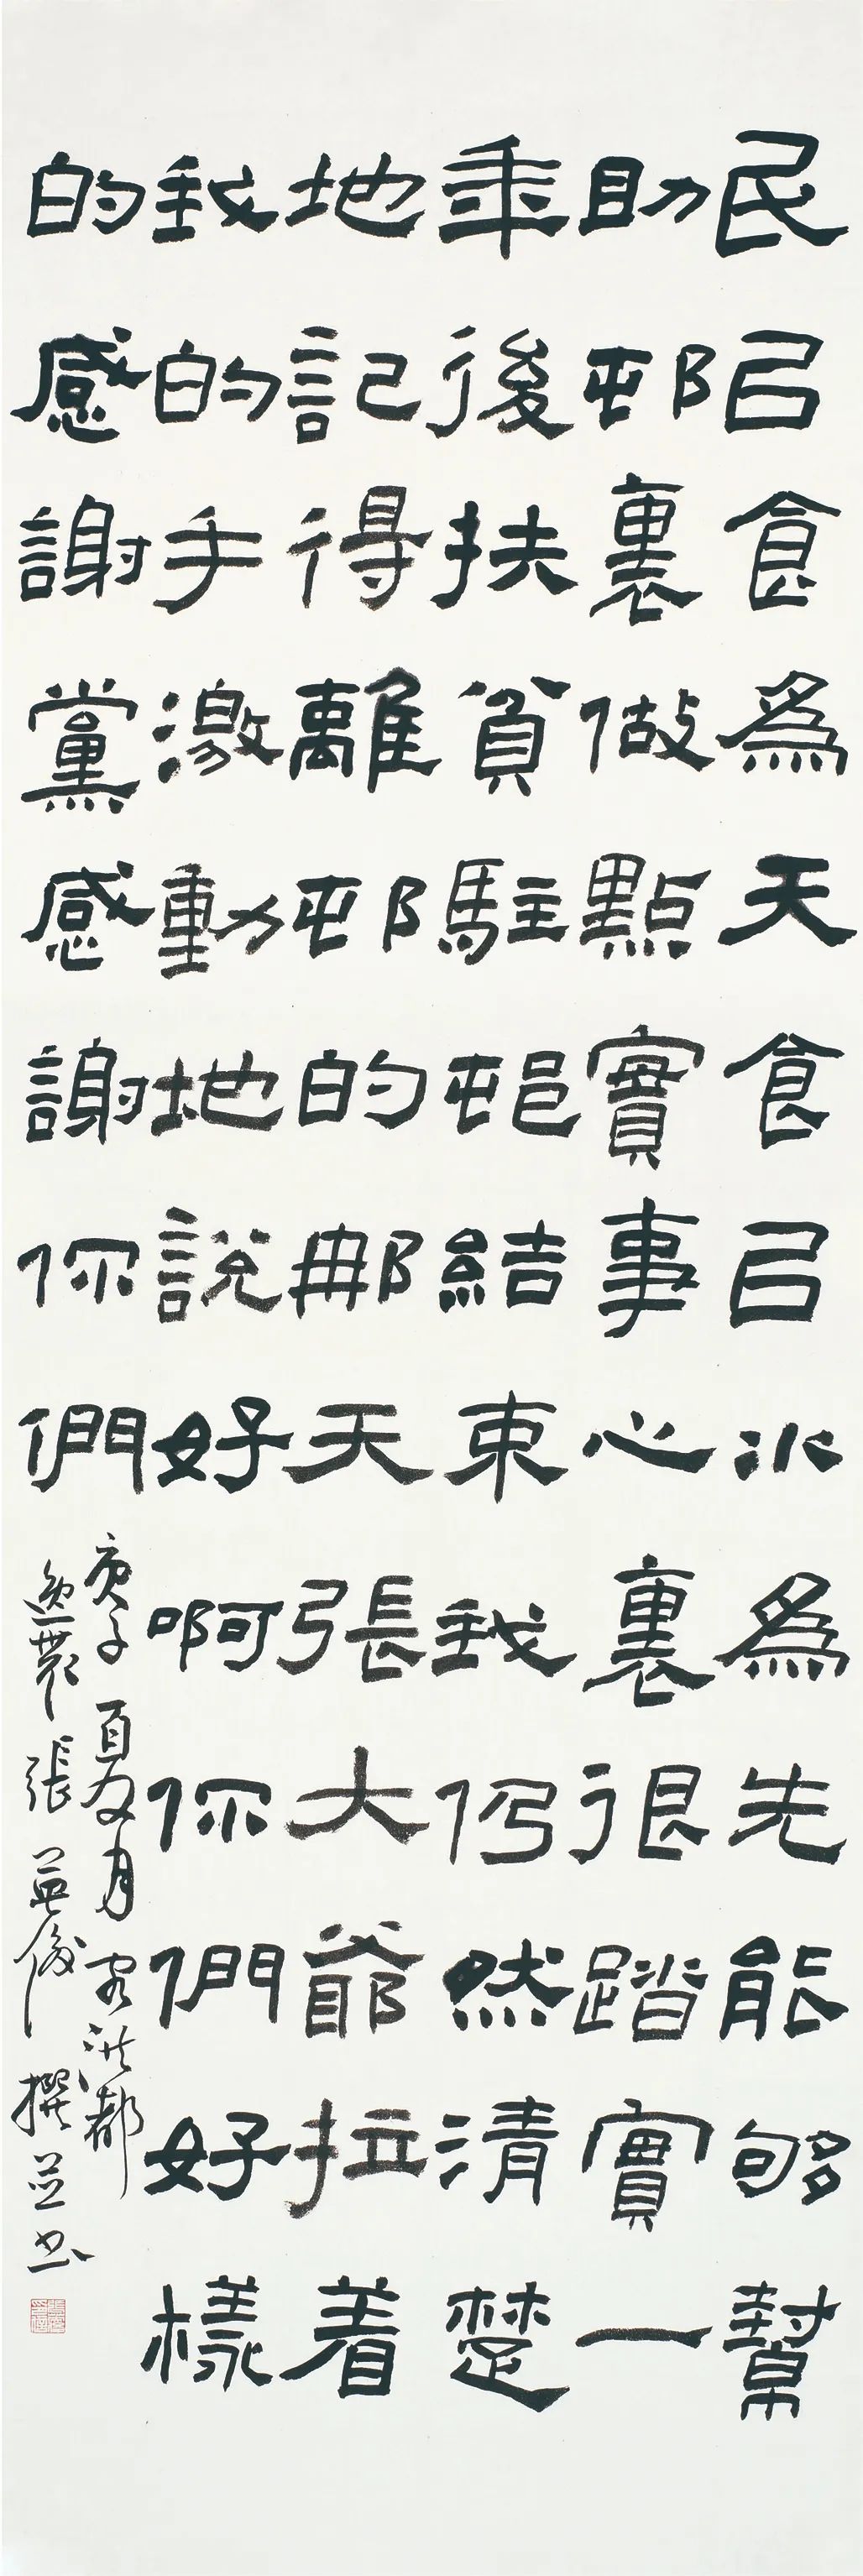 民以食為天食以水為先能夠幫
助邨裏做點實事心裏很踏實一
年後扶貧駐邨結束我仍然清楚
地記得離邨的那天張大爺拉着
我的手激動地說好啊你們好樣
的感謝黨感謝你們
庚子夏月客洪都
逸農張英俊撰並書